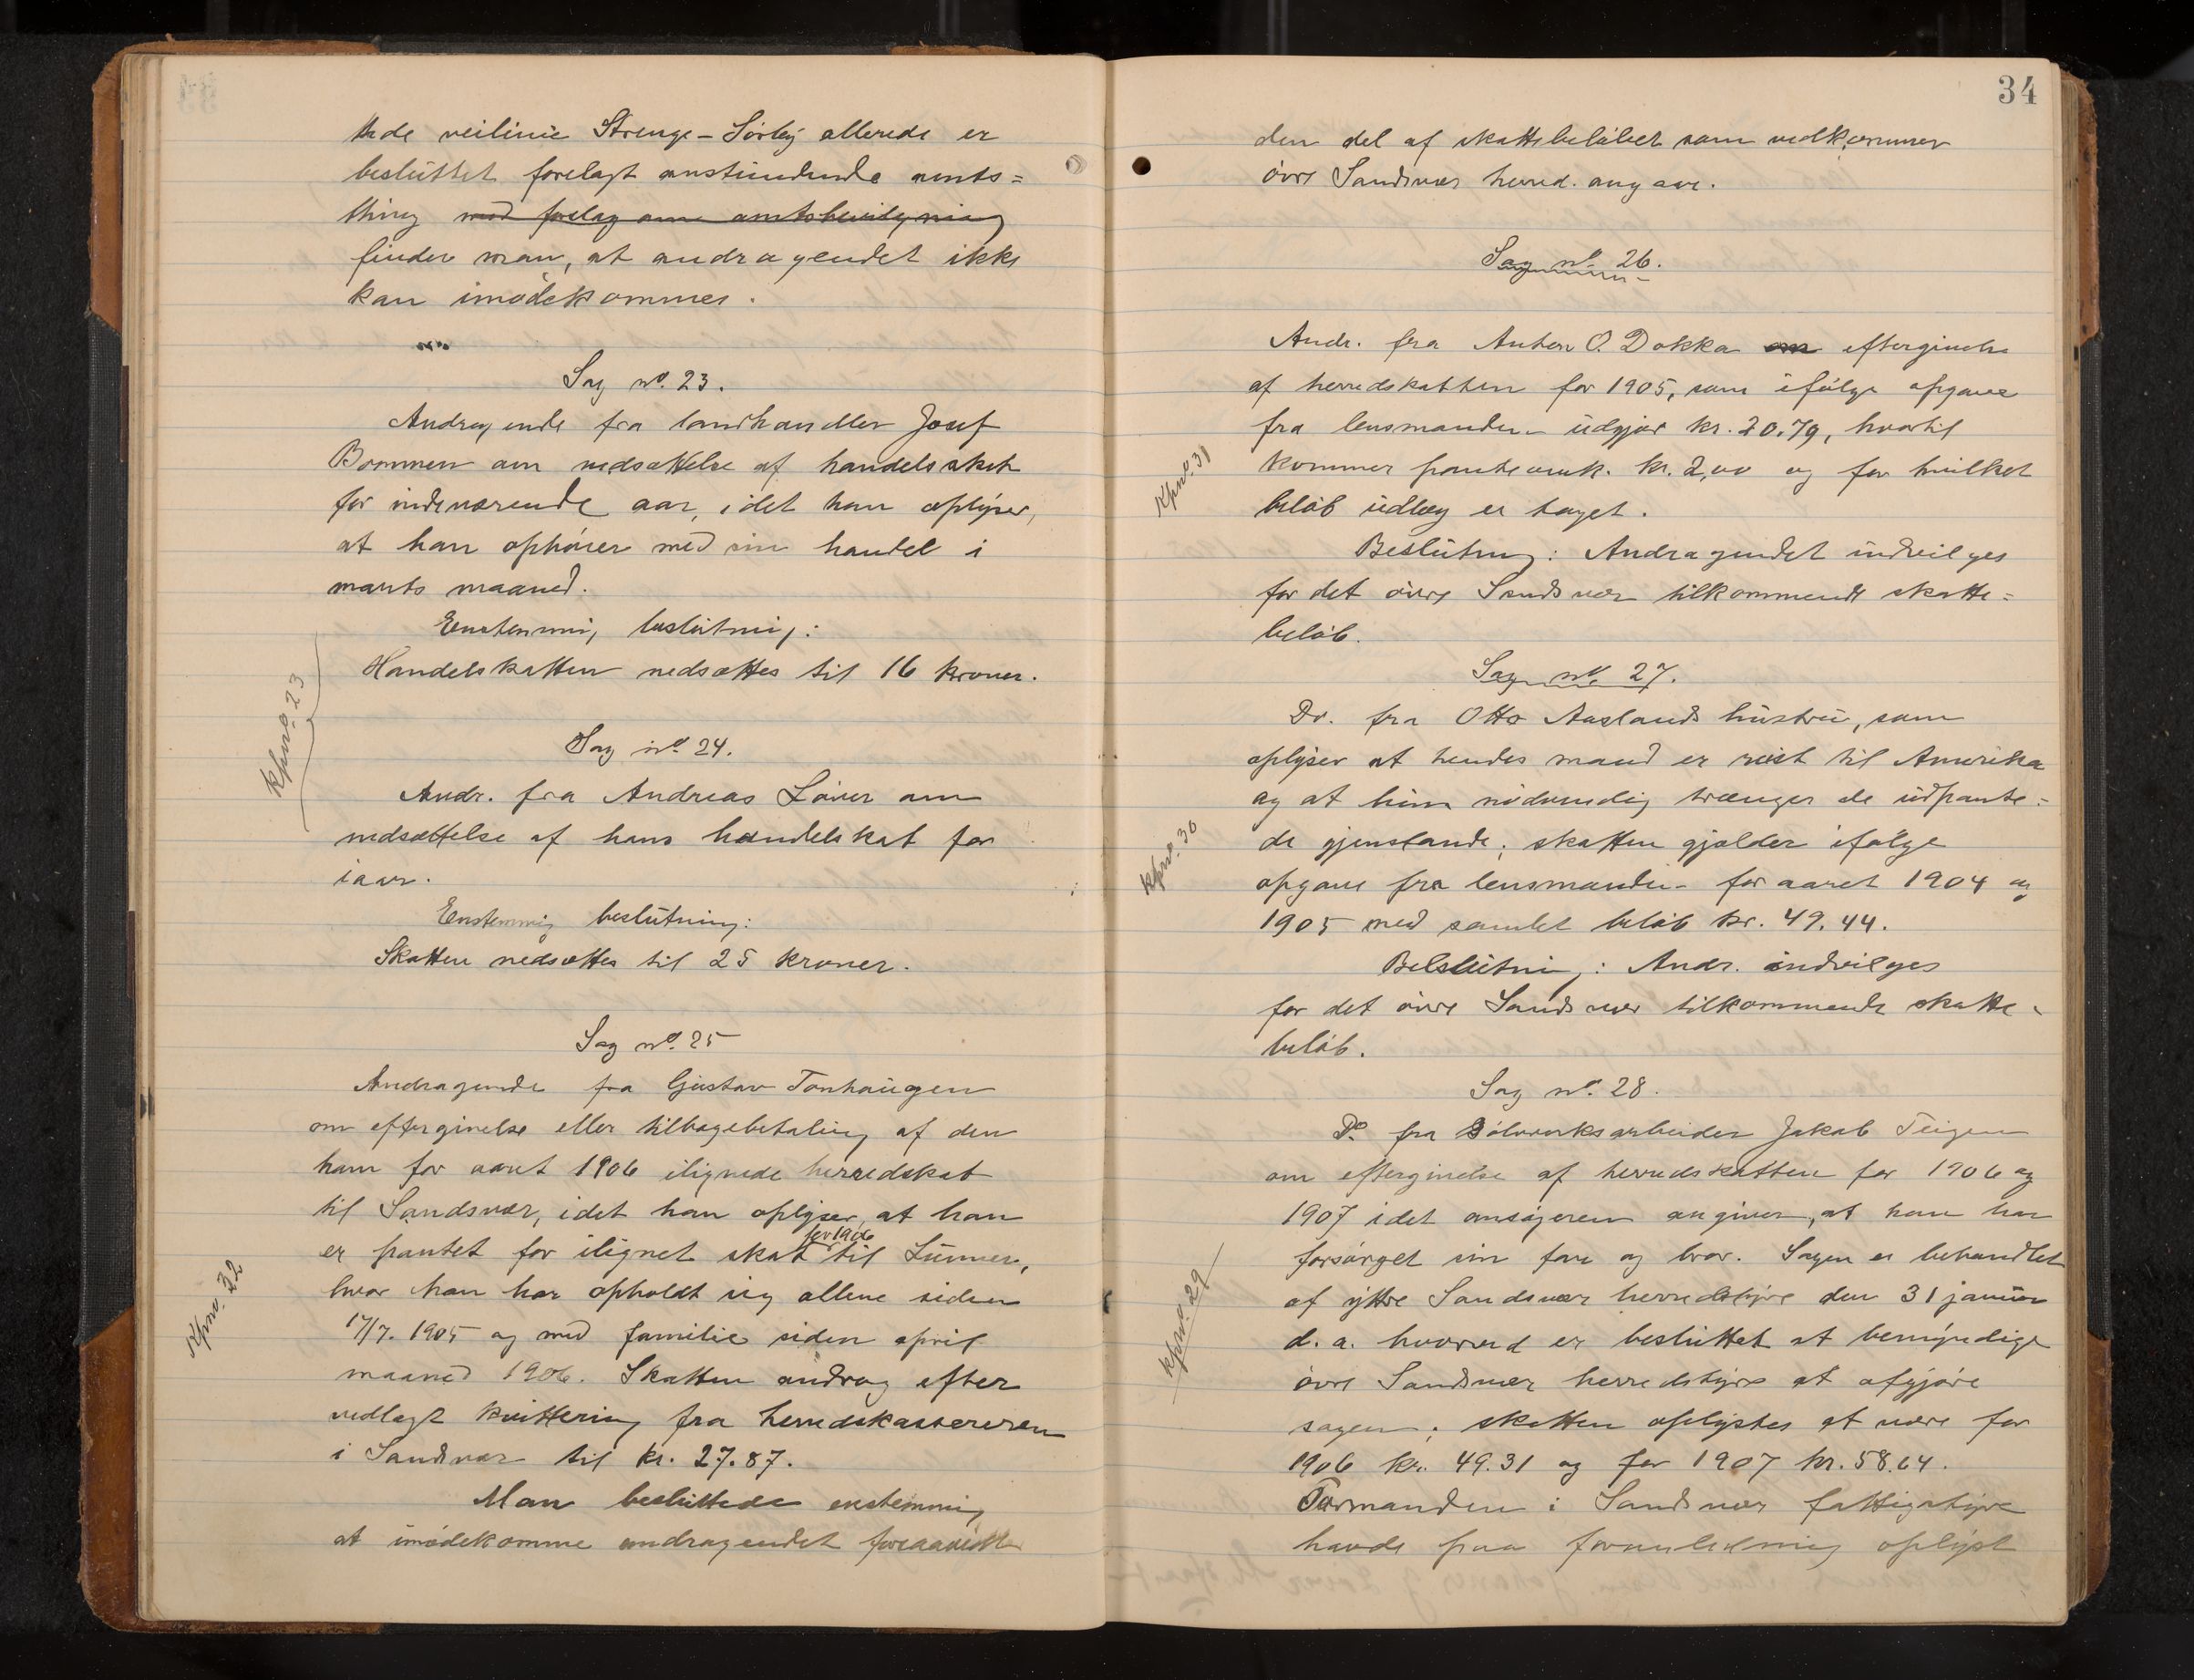 tede veilinie Strenge-Sørby allerede er
besluttet forelagt anstundende amts=
thing med forslag om amtsbevilgning
finder man, at andragendet ikke
kan imødekommes.
Sag no. 23.
Andragende fra landhandler Josef
Bommen om nedsættelse af handelsskat
for indeværende aar, idet han oplyser,
at han ophører med sin handel i
marts maaned.
Enstemmig beslutning:
Handelskatten nedsættes til 16 kroner.
Kpno. 23
Sag no. 24.
Andr. fra Andreas Løver om
nedsættelse af hans handelskat for
iaar.
Enstemmig beslutning:
Skatten nedsættes til 25 kroner.
Sag no. 25
Andragende fra Gustav Tonhaugen
om eftergivelse eller tilbagebetaling af den
ham for aaret 1906 ilignede herredskat
til Sandsvær, idet han oplyser, at han
er pantet for ilignet skat for 1906 til Lunner,
hvor han har opholdt sig allene siden
17/7. 1905 og med familie siden april
maaned 1906. Skatten androg efter
vedlagt kvittering fra herredskassereren
i Sandsvær til kr. 27.87.
Kpno. 32
Man besluttede enstemmig
at imødekomme andragendet forsaavidt
34
den del af skattebeløbet som vedkommer
øvre Sandsvær herred angaar.
Sag no. 26.
Andr. fra Anton O. Dokka om eftergivelse
af herredskatten for 1905, som ifølge opgave
fra lensmanden udgjør kr. 20.79, hvortil
kommer panteomk. kr. 2,00 og for hvilket
beløb udlæg er taget.
Kpno. 31
Beslutning: Andragendet indvilges
for det øvre Sandsvær tilkommende skatte=
beløb.
Sag no. 27.
Do. fra Otto Aaslands hustru, som
oplyser at hendes mand er reist til Amerika
og at hun nødvendig trænger de udpante=
de gjenstande; skatten gjælder ifølge
opgave fra lensmanden for aaret 1904 og
1905 med samlet beløb kr. 49.44.
Kpno. 30
Belslutning: Andr. indvilges
for det øvre Sandsvær tilkommende skatte-
beløb.
Sag no. 28.
Do. fra Sølvverksarbeider Jakob Teigen
om eftergivelse af herredskatten for 1906 og
1907 idet ansøgeren angiver, at han har
forsørget sin far og bror. Sagen er behandlet
af ytre Sandsvær herredstyre den 31 januar
d. a. hvorved er besluttet at bemyndige
øvre Sandsvær herredstyre at afgjøre
sagen; skatten oplystes at være for
1906 kr. 49.31 og for 1907 kr. 58.64.
Kpno. 29
Formanden i Sandsvær fattigstyre
havde paa foranledning oplyst